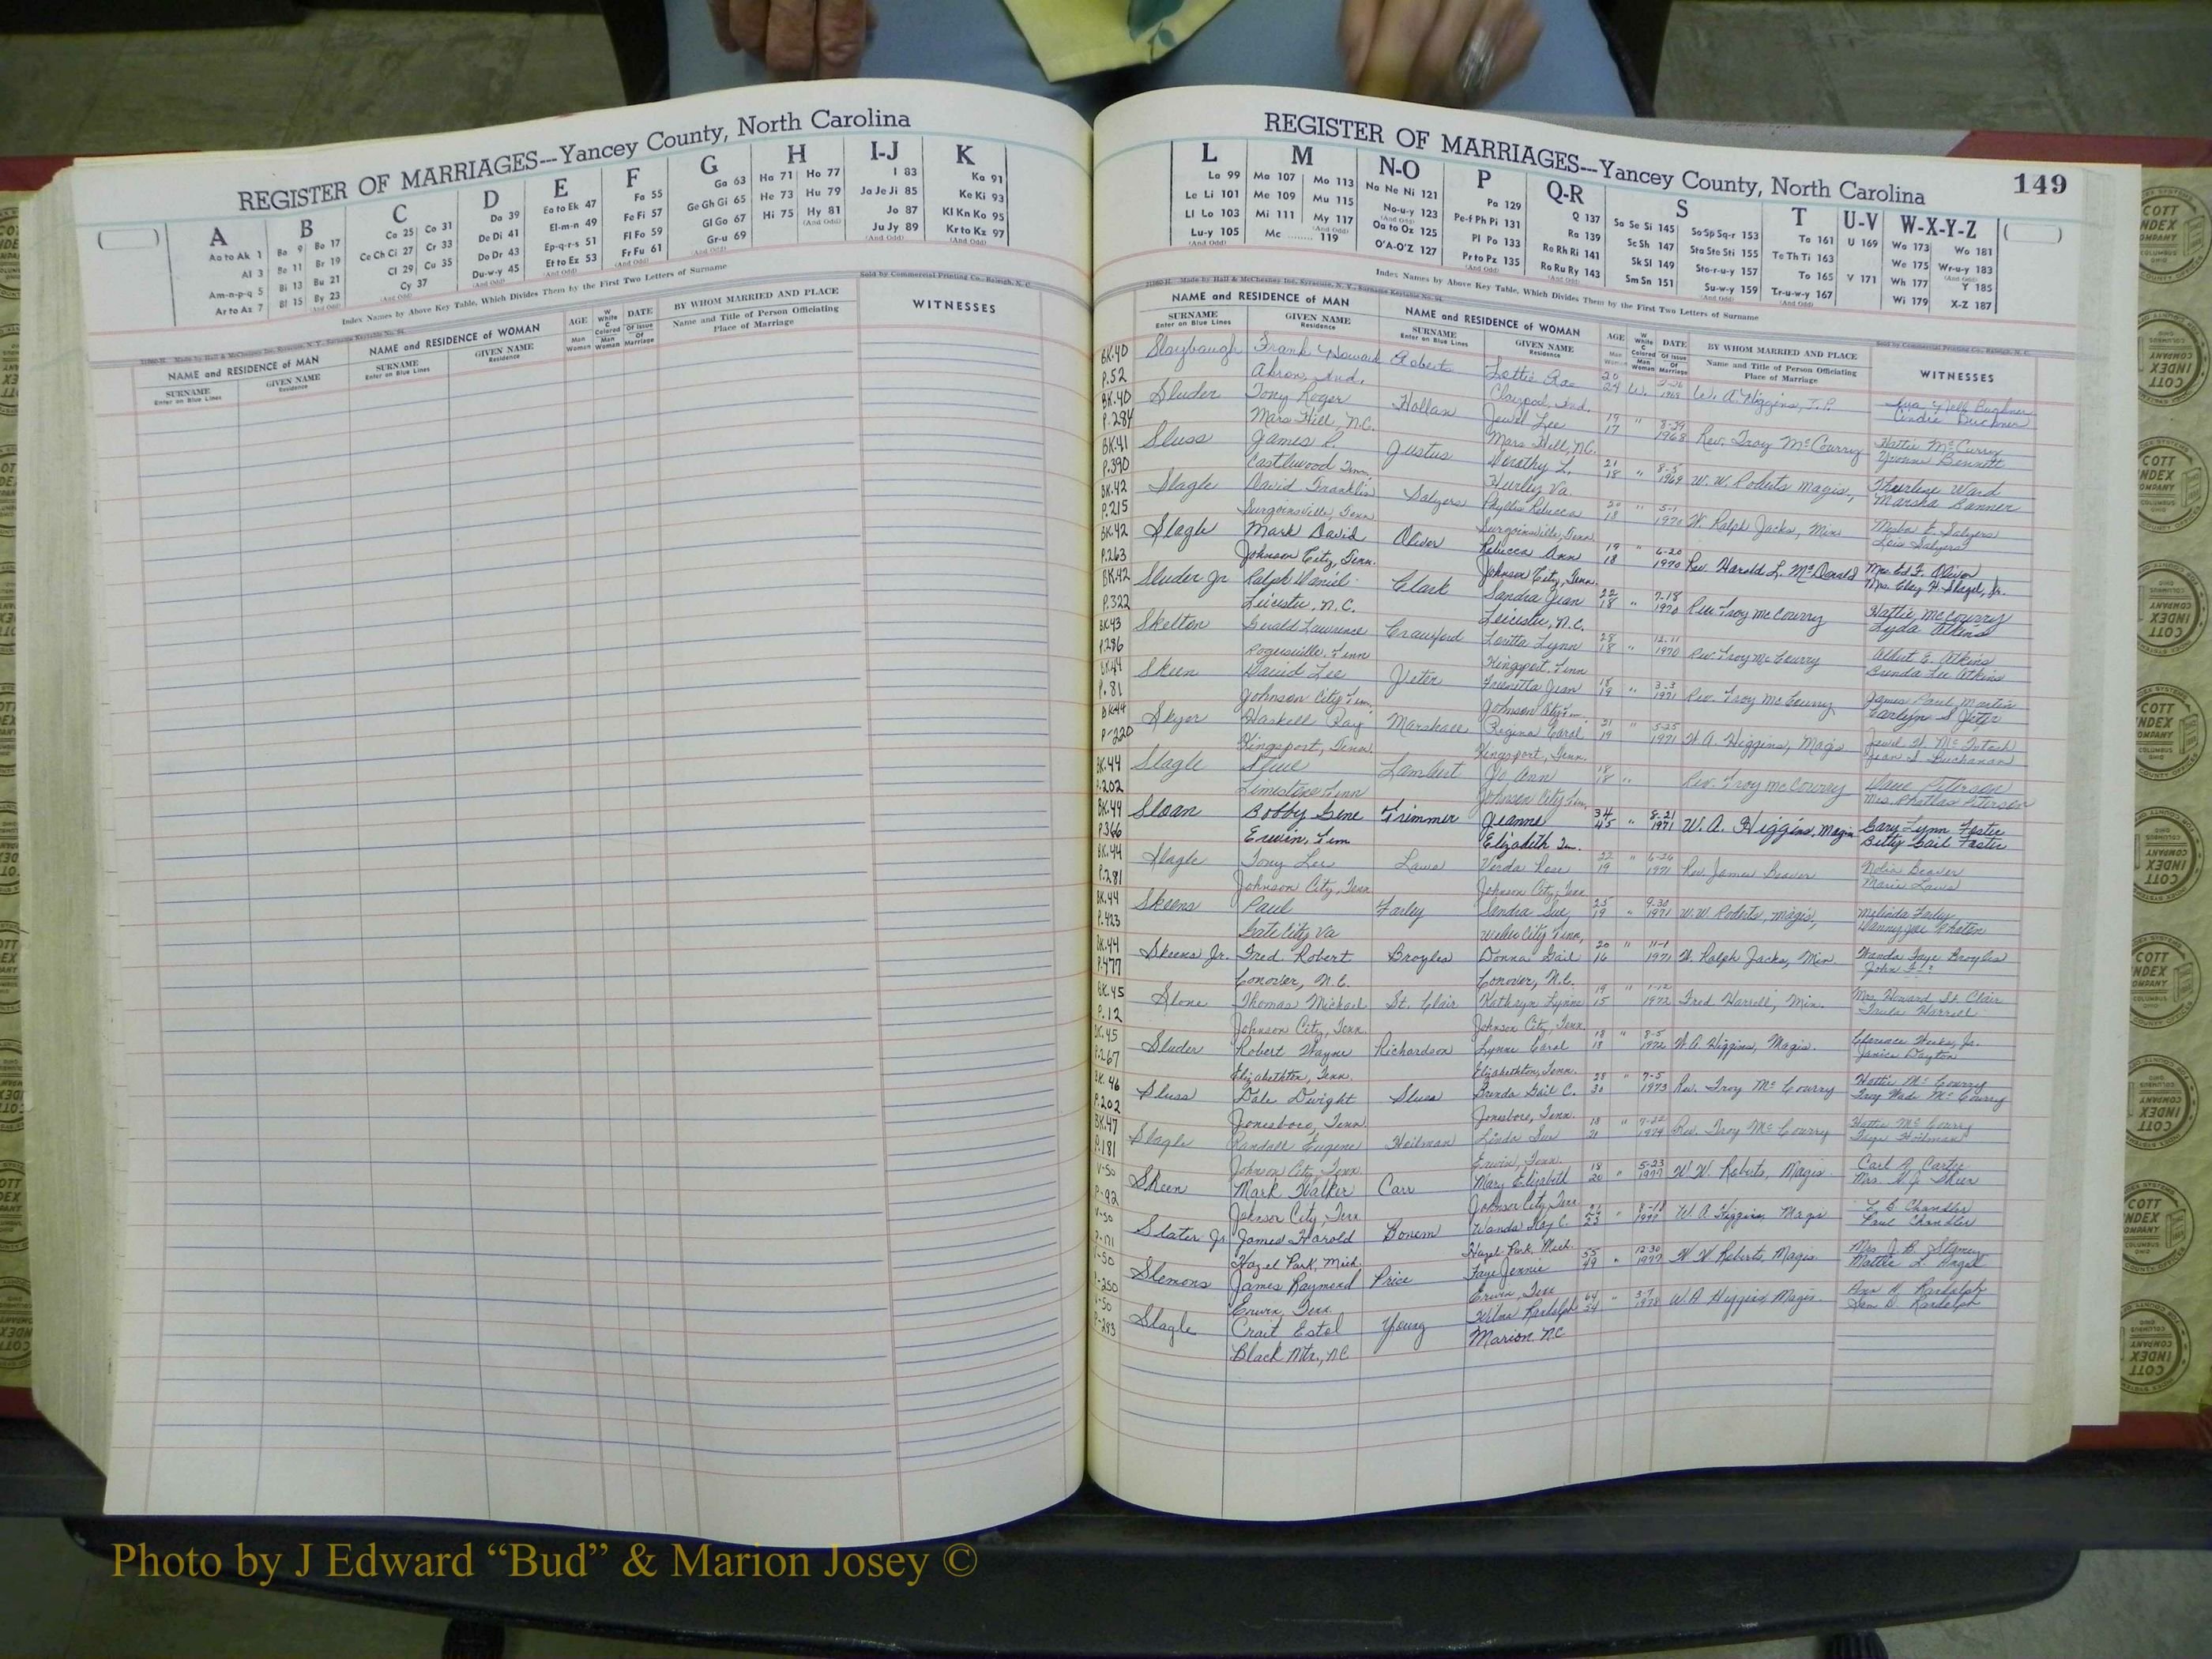 REGISTER OF MARRIAGES---Yancey County, North Carolina
A B C D E F G H I-J K
Aa to Ak 1
Al 3
Am-n-p-q 5
Ar to Az 7
Ba 9 Bo 17
Be 11 Br 19
Bi 13 Bu 21
Bl 15 By 23
Ca 25 Co 31
Ce Ch Ci 27 Cr 33
Cl 29 Cu 35
Cy 37
Da 39
De Di 41
Do Dr 43
Du-w-y 45
Ea to Ek 47
El-m-n 49
Ep-q-r-s 51
Et to Ez 53
Fa 55
Fe Fi 57
Fl Fo 59
Fr Fu 61
Ga 63
Ge Gh Gi 65
Gl Go 67
Gr-u 69
Ha 71 Ho 77
He 73 Hu 79
Hi 75 Hy 81
I 83
Ja Je Ji 85
Jo 87
Ju Jy 89
Ka 91
Ke Ki 93
Kl Kn Ko 95
Kr to Kz 97
Index Names by Above Key Table, Which Divides Them by the First Two Letters of Surname
Sold by Commercial Printing Co., Raleigh, N. C.
NAME and RESIDENCE OF MAN
SURNAME Enter on Blue Lines
GIVEN NAME Residence
NAME and RESIDENCE OF WOMAN
SURNAME Enter on Blue Lines
GIVEN NAME Residence
AGE Man Woman
W White C Colored Man Woman
DATE Of Issue Of Marriage
BY WHOM MARRIED AND PLACE
Name and Title of Person Officiating
Place of Marriage
WITNESSES
REGISTER OF MARRIAGES---Yancey County, North Carolina 149
L M N-O P Q-R S T U-V W-X-Y-Z
La 99
Le Li 101
Ll Lo 103
Lu-y 105
Ma 107 Mo 113
Me 109 Mu 115
Mi 111 My 117
Mc 119
Na Ne Ni 121
No-u-y 123
Oa to Oz 125
O'A-O'Z 127
Pa 129
Pe-f Ph Pi 131
Pl Po 133
Pr to Pz 135
Q 137
Ra 139
Re Rh Ri 141
Ro Ru Ry 143
Sa Se Si 145
Sc Sh 147
Sk Sl 149
Sm Sn 151
So Sp Sq-r 153
Sta Ste Sti 155
Sto-r-u-y 157
Su-w-y 159
Ta 161
Te Th Ti 163
To 165
Tr-u-w-y 167
U 169
V 171
Wa 173 Wo 181
We 175 Wr-u-y 183
Wh 177 Y 185
Wi 179 X-Z 187
Index Names by Above Key Table, Which Divides Them by the First Two Letters of Surname
Made by Hall & McChesney, Inc. Syracuse, N. Y.
NAME and RESIDENCE OF MAN
SURNAME Enter on Blue Lines
GIVEN NAME Residence
NAME and RESIDENCE OF WOMAN
SURNAME Enter on Blue Lines
GIVEN NAME Residence
AGE
W White C Colored Man Woman
DATE Of Issue Of Marriage
BY WHOM MARRIED AND PLACE
Name and Title of Person Officiating
Place of Marriage
WITNESSES
BK.40 Slaybaugh Frank Howard Robert Lottie Rae 20 24 W. W. A. Higgins, J.P.
P.52 Akron, Ind. Claypool, Ind.
BK.40 Sluder Tony Roger Hollan Jewel Lee 19 17 " 8-29 1968 Rev. Troy McCourry Hattie McCurry Yvonne Bennett
P.284 Mars Hill, N.C. Mars Hill, N.C.
BK.41 Sluss James R. Justus Dorothy L. 21 18 " 8-5 1969 W. W. Roberts Magis, Thurlene Ward Marsha Banner
P.390 Castlewood Hurley Va.
BK.42 Slagle David Franklin Salyers Phyllis Rebecca 20 18 " 5-1 1970 W. Ralph Jacks, Min Lois Salyers
P.215 Surgoinsville, Tenn Surgoinsville, Tenn
BK.42 Slagle Mark David Oliver Rebecca Ann 19 18 " 6-20 1970 Rev. Harold L. McDonald Mrs. Ed F. Oliver
P.263 Johnson City, Tenn. Johnson City, Tenn.
BK.42 Sluder Jr Ralph Daniel Clark Sandra Jean 22 18 " 7-18 1970 Rev. Troy McCourry Hattie McCourry Lyda Atkins
P.322 Leicester, N.C. Leicester, N.C.
BK.43 Skelton Gerald Lawrence Crawford Loretta Lynn 28 18 " 12-11 1970 Rev. Troy McCourry Albert E. Atkins Brenda Lee Atkins
P.286 Rogersville, Tenn Kingsport, Tenn
BK.44 Skeen David Lee Jeter Jean 18 19 " 3-3 1971 Rev. Troy McCourry James Paul Martin Carlyn S Jeter
P.81 Johnson City Tenn. Johnson City Tenn
BK44 Skyer Haskell Ray Marshall Regina Carol 21 19 " 5-25 1971 W.A. Higgins, Magis Jewel H. McIntosh Jean S. Buchanan
P-220 Kingsport, Tenn. Kingsport, Tenn.
BK.44 Slagle Steve Lambert Jo Ann 18 18 " Rev. Troy McCourry Dave Peterson
P.202 Limestone Tenn Johnson City Tenn
BK.44 Sloan Bobby Gene Trimmer Jeanne 34 45 " 8-21 1971 W. A. Higgins, Magis Gary Lynn Foster Betty Gail Foster
P.366 Erwin, Tenn Elizabeth Tn.
BK.44 Slagle Tony Lee Laws Verda Rose 22 19 " 6-26 1971 Rev. James Beaver Nolia Beaver Marie Laws
P.281 Johnson City, Tenn Johnson City, Tenn
BK.44 Skeens Paul Farley Sandra Sue 25 19 " 9-30 1971 W.W. Roberts, Magis, Melinda Farley
P.423 Gate City Va Weber City Tenn,
BK.44 Skeens Jr. Fred Robert Broyles Donna Gail 20 16 " 11-1 1971 W. Ralph Jacks, Min. Wanda Faye Broyles
P.477 Conover, N.C. Conover, N.C.
BK.45 Slone Thomas Michael St. Clair Kathryn Lynne 19 15 " 1-12 1972 Fred Harrell, Min. Mrs. Howard St. Clair Harrell
P.12 Johnson City, Tenn. Johnson City, Tenn.
BK.45 Sluder Robert Wayne Richardson Lynne Carol 18 18 " 8-5 1972 W.A. Higgins, Magis. Janice Dayton
P.267 Elizabethton, Tenn. Elizabethton, Tenn.
BK.46 Sluss Dale Dwight Sluss Brenda Gail C. 28 30 " 7-5 1973 Rev. Troy McCourry Hattie McCourry Troy Wade McCourry
P.202 Jonesboro, Tenn Jonesboro, Tenn.
BK.47 Slagle Randall Eugene Heilman Linda Sue 18 21 " 7-22 1974 Rev. Troy McCourry Hattie McCourry
P.181 Johnson City, Tenn. Erwin, Tenn.
V-50 Skeen Mark Walker Carr Mary Elizabeth 18 20 " 5-23 1977 W.W. Roberts, Magis. Carl R. Carter
P-92 Johnson City, Tenn Johnson City, Tenn
V-50 Slater Jr James Harold Bonem Wanda Kay C. W A Higgins Magis L B Chandler Paul Chandler
P-171 Hazel Park, Mich. Hazel Park, Mich.
V-50 Slemons James Raymond Price Faye Jennie 55 49 " 12-30 1977 W W Roberts, Magis. Mattie L. Angel
P-250 Erwin, Tenn Erwin, Tenn
V-50 Slagle Crait Estol Young Wilma Randolph 64 54 " 3-7 1978 W A Higgins, Magis. Ann H. Randolph Sam D. Randolph
P-293 Black Mtn., NC Marion NC
Photo by J Edward “Bud” & Marion Josey ©
COTT
INDEX
COMPANY
COLUMBUS
OHIO